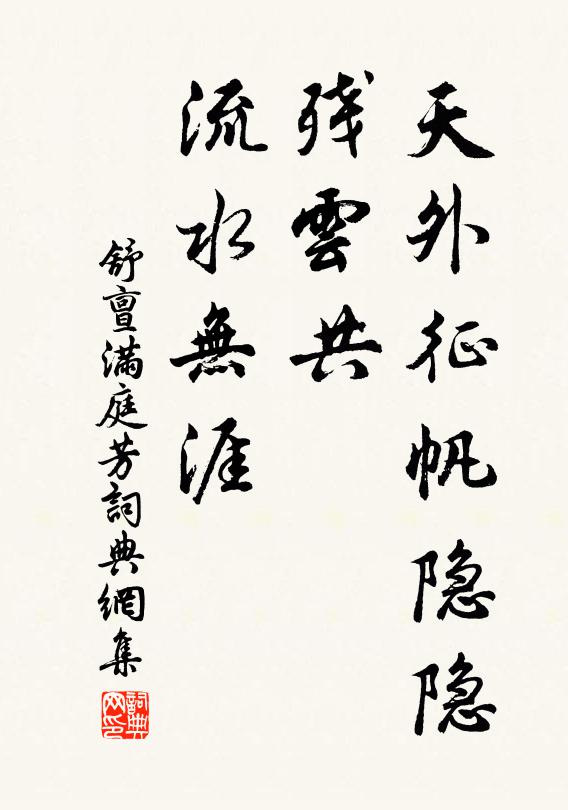 天外征帆隐隐
残雲共
流水無涯
舒亶満庭芳詞典網集
詞典
网印